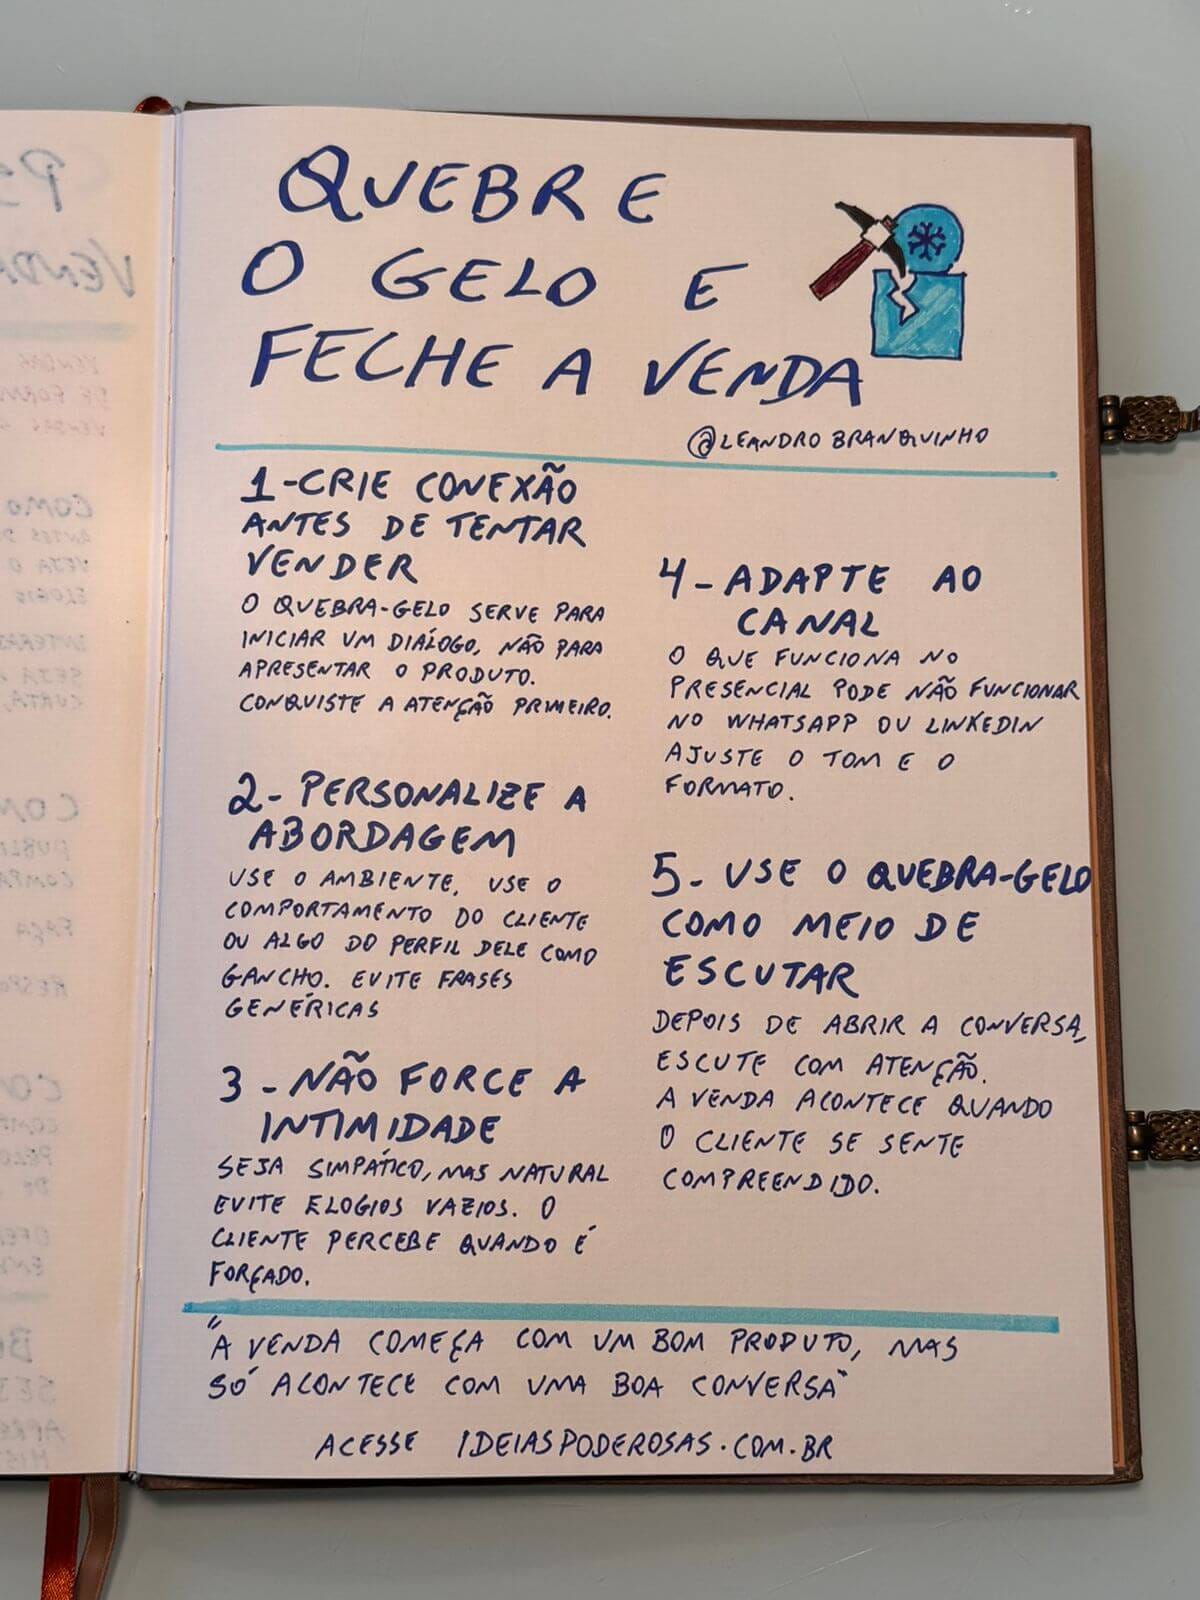 QUEBRE
O GELO E
FECHE A VENDA
@LEANDRO BRANQUINHO
1-CRIE CONEXÃO
ANTES DE TENTAR
VENDER
O QUEBRA-GELO SERVE PARA
INICIAR UM DIÁLOGO, NÃO PARA
APRESENTAR O PRODUTO.
CONQUISTE A ATENÇÃO PRIMEIRO.
2- PERSONALIZE A
ABORDAGEM
USE O AMBIENTE, USE O
COMPORTAMENTO DO CLIENTE
OU ALGO DO PERFIL DELE COMO
GANCHO. EVITE FRASES
GENÉRICAS
3 - NÃO FORCE A
INTIMIDADE
SEJA SIMPÁTICO, MAS NATURAL
EVITE ELOGIOS VAZIOS. O
CLIENTE PERCEBE QUANDO É
FORÇADO.
4 - ADAPTE AO
CANAL
O QUE FUNCIONA NO
PRESENCIAL PODE NÃO FUNCIONAR
NO WHATSAPP OU LINKEDIN
AJUSTE O TOM E O
FORMATO.
5- USE O QUEBRA-GELO
COMO MEIO DE
ESCUTAR
DEPOIS DE ABRIR A CONVERSA,
ESCUTE COM ATENÇÃO.
A VENDA ACONTECE QUANDO
O CLIENTE SE SENTE
COMPREENDIDO.
"A VENDA COMEÇA COM UM BOM PRODUTO, MAS
SÓ ACONTECE COM UMA BOA CONVERSA"
ACESSE IDEIASPODEROSAS.COM.BR